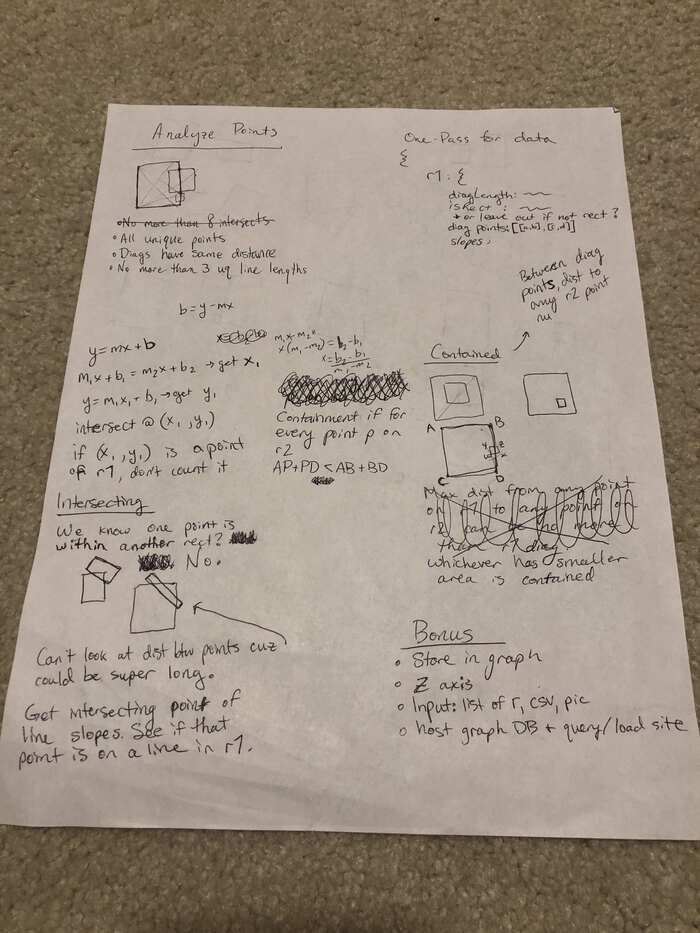 Analyze Points
No more than 8 intersects
• All unique points
• Diags have same distance
• No more than 3 uq line lengths
b=y-mx
y=mx+b
m₁x+b₁ = m₂x+b₂ → get x₁
y=m₁x₁+b₁ → get y₁
intersect @ (x₁,y₁)
if (x₁,y₁) is a point
of r1, don't count it
m₁x-m₂x
x(m₁-m₂) = b₂-b₁
x = b₂-b₁
m₁-m₂
Containment if for
every point p on
r2
AP+PD < AB+BD
Intersecting
We know one point is
within another rect?
No.
Can't look at dist btw points cuz
could be super long.
Get intersecting point of
line slopes. See if that
point is on a line in r1.
One-Pass for data
{
r1: {
diagLength:
isRect:
* or leave out if not rect?
diag points: [[a,b],[c,d]]
slopes:
Between diag
points, dist to
any r2 point
Contained
A
B
y
z
x
C
D
Max dist from any point
on r1 to any point on
r2 can be no more
than r1 diag
whichever has smaller
area is contained
Bonus
• Store in graph
• Z axis
• Input: list of r, csv, pic
• host graph DB + query/load site